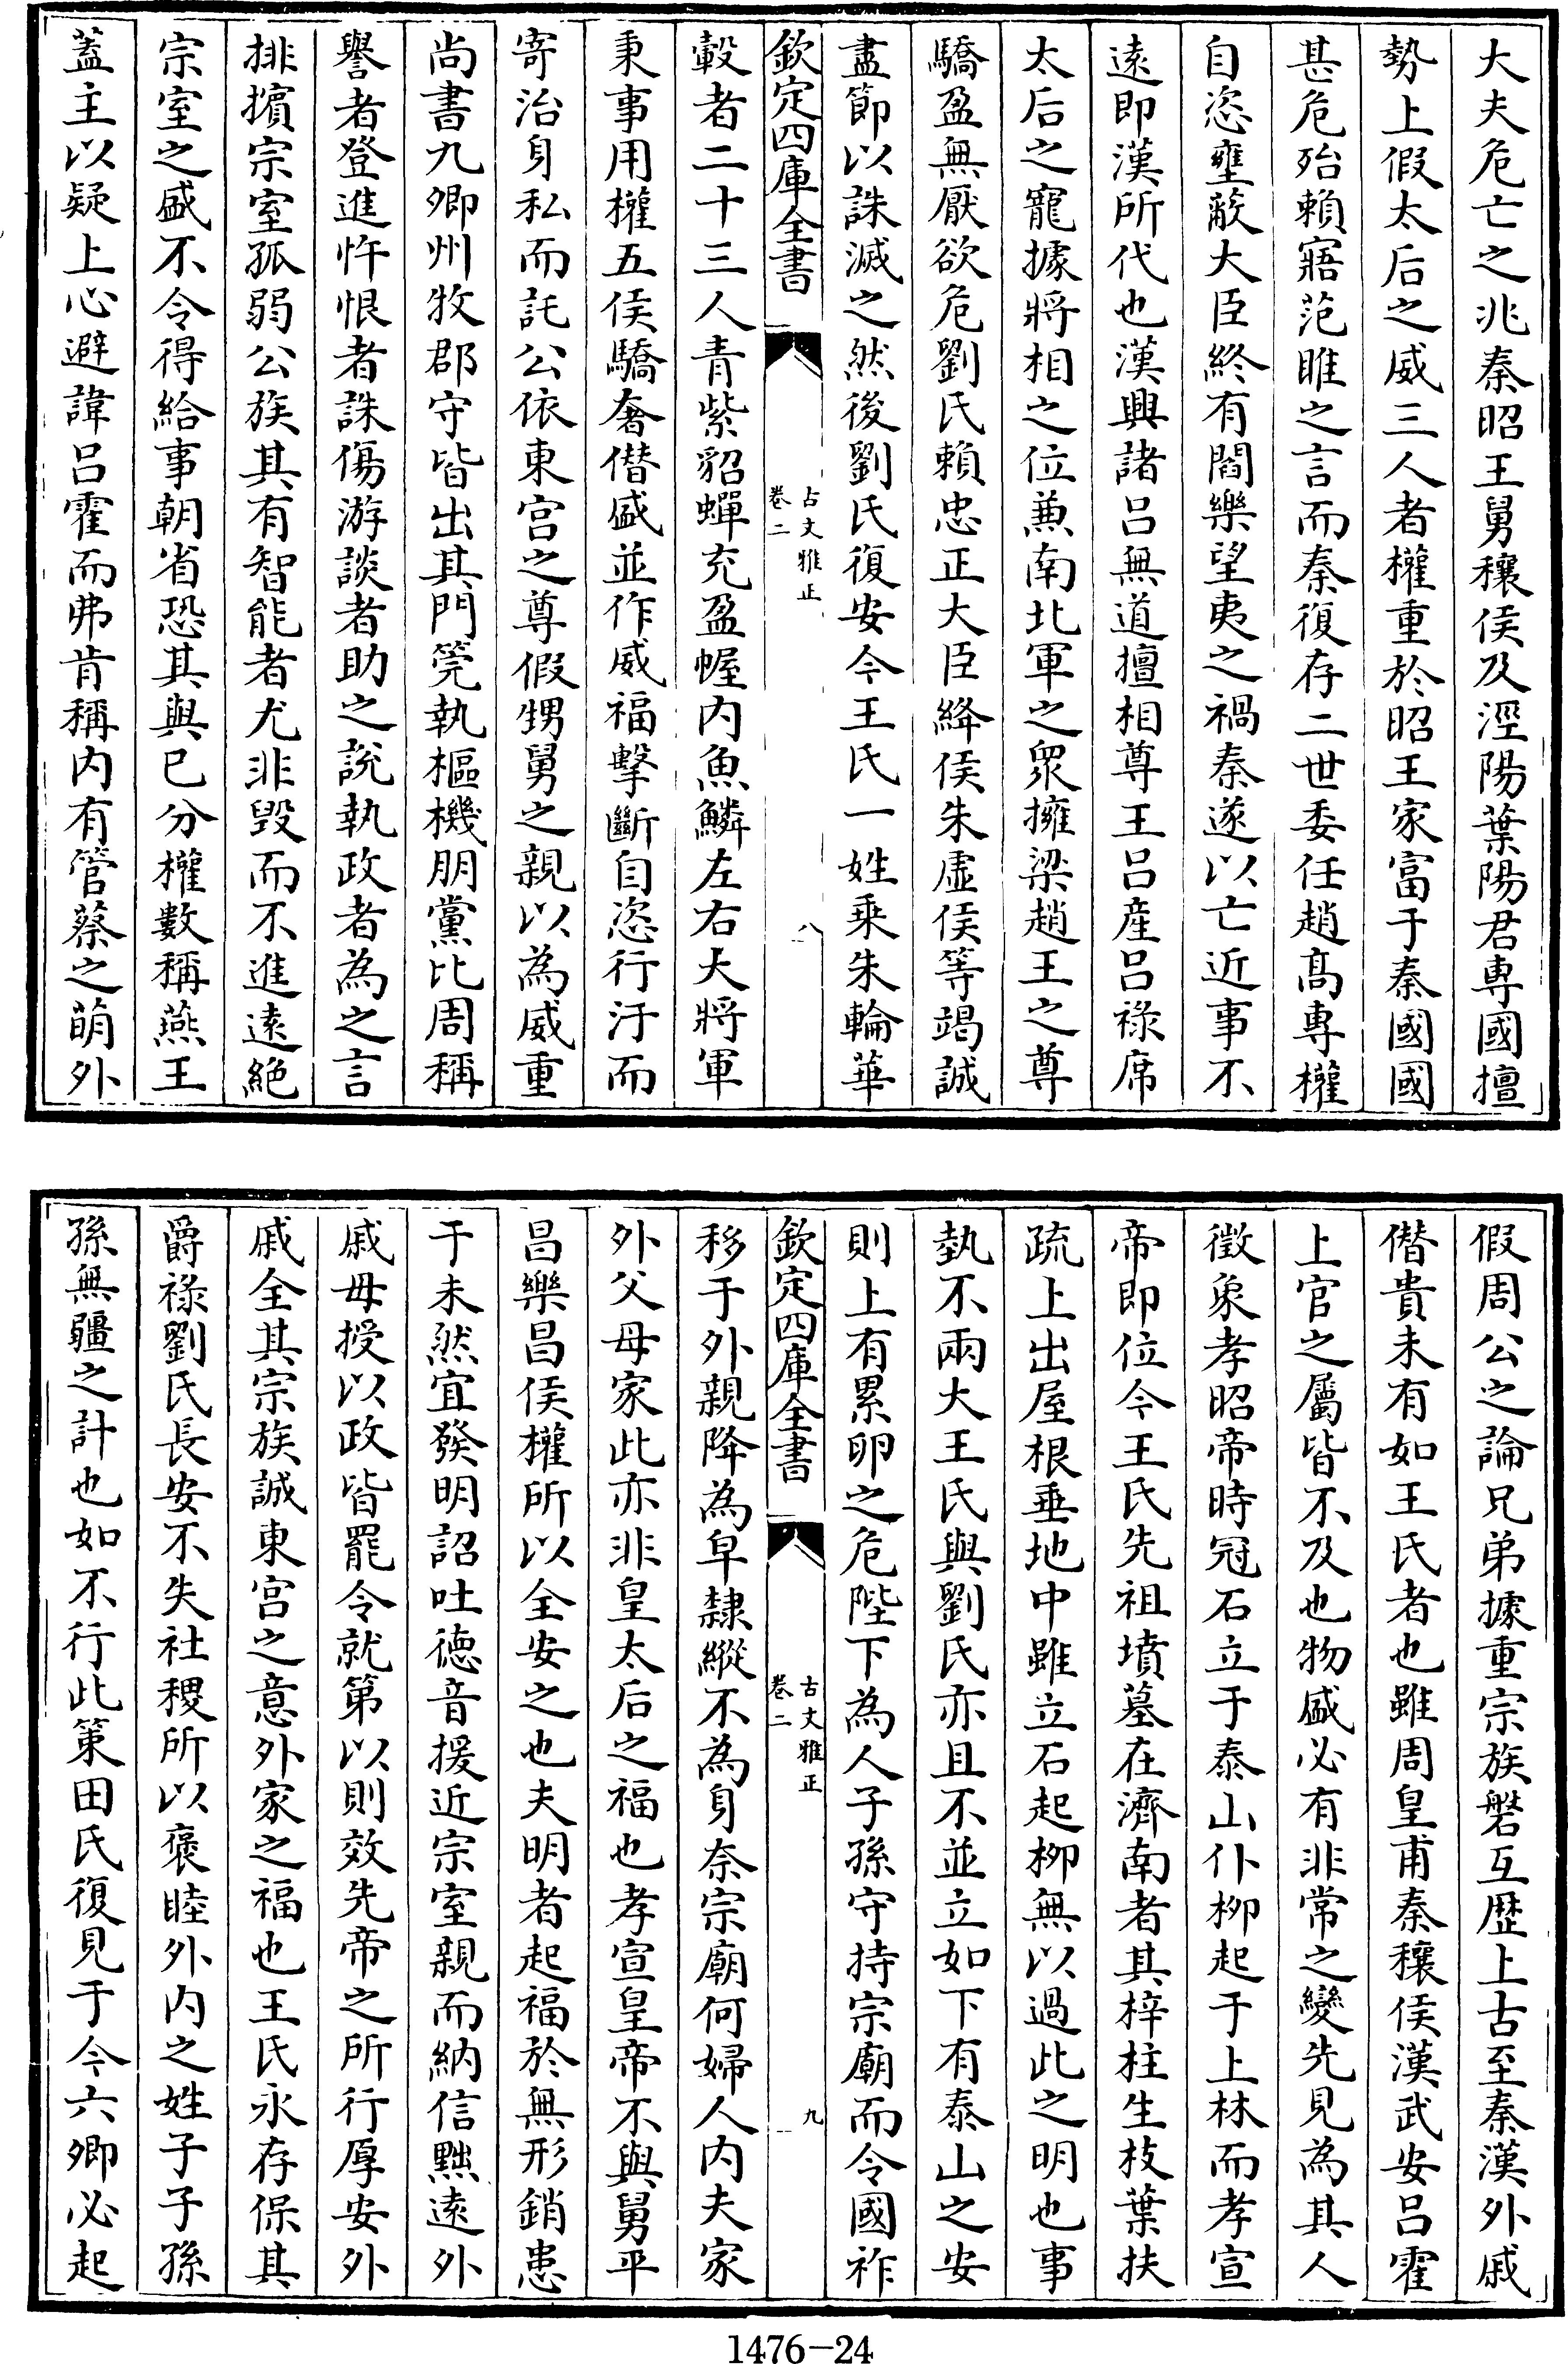 大夫危亡之兆秦昭王舅穰侯及涇陽葉陽君專國擅
勢上假太后之威三人者權重於昭王家富于秦國國
甚危殆賴寤范睢之言而秦復存二世委任趙髙專權
自恣壅蔽大臣終有閻樂望夷之禍秦遂以亡近事不
逺即漢所代也漢興諸吕無道擅相尊王吕産吕祿席
太后之寵據將相之位兼南北軍之衆擁梁趙王之尊
驕盈無厭欲危劉氏賴忠正大臣絳侯朱虚侯等竭誠
盡節以誅滅之然後劉氏復安今王氏一姓乗朱輪華
欽定四庫全書
古文雅正
卷二
八
轂者二十三人青紫貂蟬充盈幄内魚鱗左右大將軍
秉事用權五侯驕奢僭盛並作威福擊斷自恣行汙而
寄治身私而託公依東宫之尊假甥舅之親以為威重
尚書九卿州牧郡守皆出其門筦執樞機朋黨比周稱
譽者登進忤恨者誅傷游談者助之說執政者為之言
排擯宗室孤弱公族其有智能者尤非毁而不進逺絶
宗室之盛不令得給事朝省恐其與已分權數稱燕王
蓋主以疑上心避諱吕霍而弗肯稱内有管蔡之萌外
假周公之論兄弟據重宗族磐互歴上古至秦漢外戚
僭貴未有如王氏者也雖周皇甫秦穰侯漢武安吕霍
上官之屬皆不及也物盛必有非常之變先見為其人
徴象孝昭帝時冠石立于泰山仆柳起于上林而孝宣
帝即位今王氏先祖墳墓在濟南者其梓柱生枝葉扶
疏上出屋根垂地中雖立石起柳無以過此之明也事
埶不兩大王氏與劉氏亦且不並立如下有泰山之安
則上有累卵之危陛下為人子孫守持宗廟而令國祚
欽定四庫全書
古文雅正
卷二
九
移于外親降為皁隸縱不為身奈宗廟何婦人内夫家
外父母家此亦非皇太后之福也孝宣皇帝不與舅平
昌樂昌侯權所以全安之也夫明者起福於無形銷患
于未然宜發明詔吐德音援近宗室親而納信黜逺外
戚毋授以政皆罷令就第以則效先帝之所行厚安外
戚全其宗族誠東宫之意外家之福也王氏永存保其
爵祿劉氏長安不失社稷所以褒睦外内之姓子子孫
孫無疆之計也如不行此策田氏復見于今六卿必起
1476-24